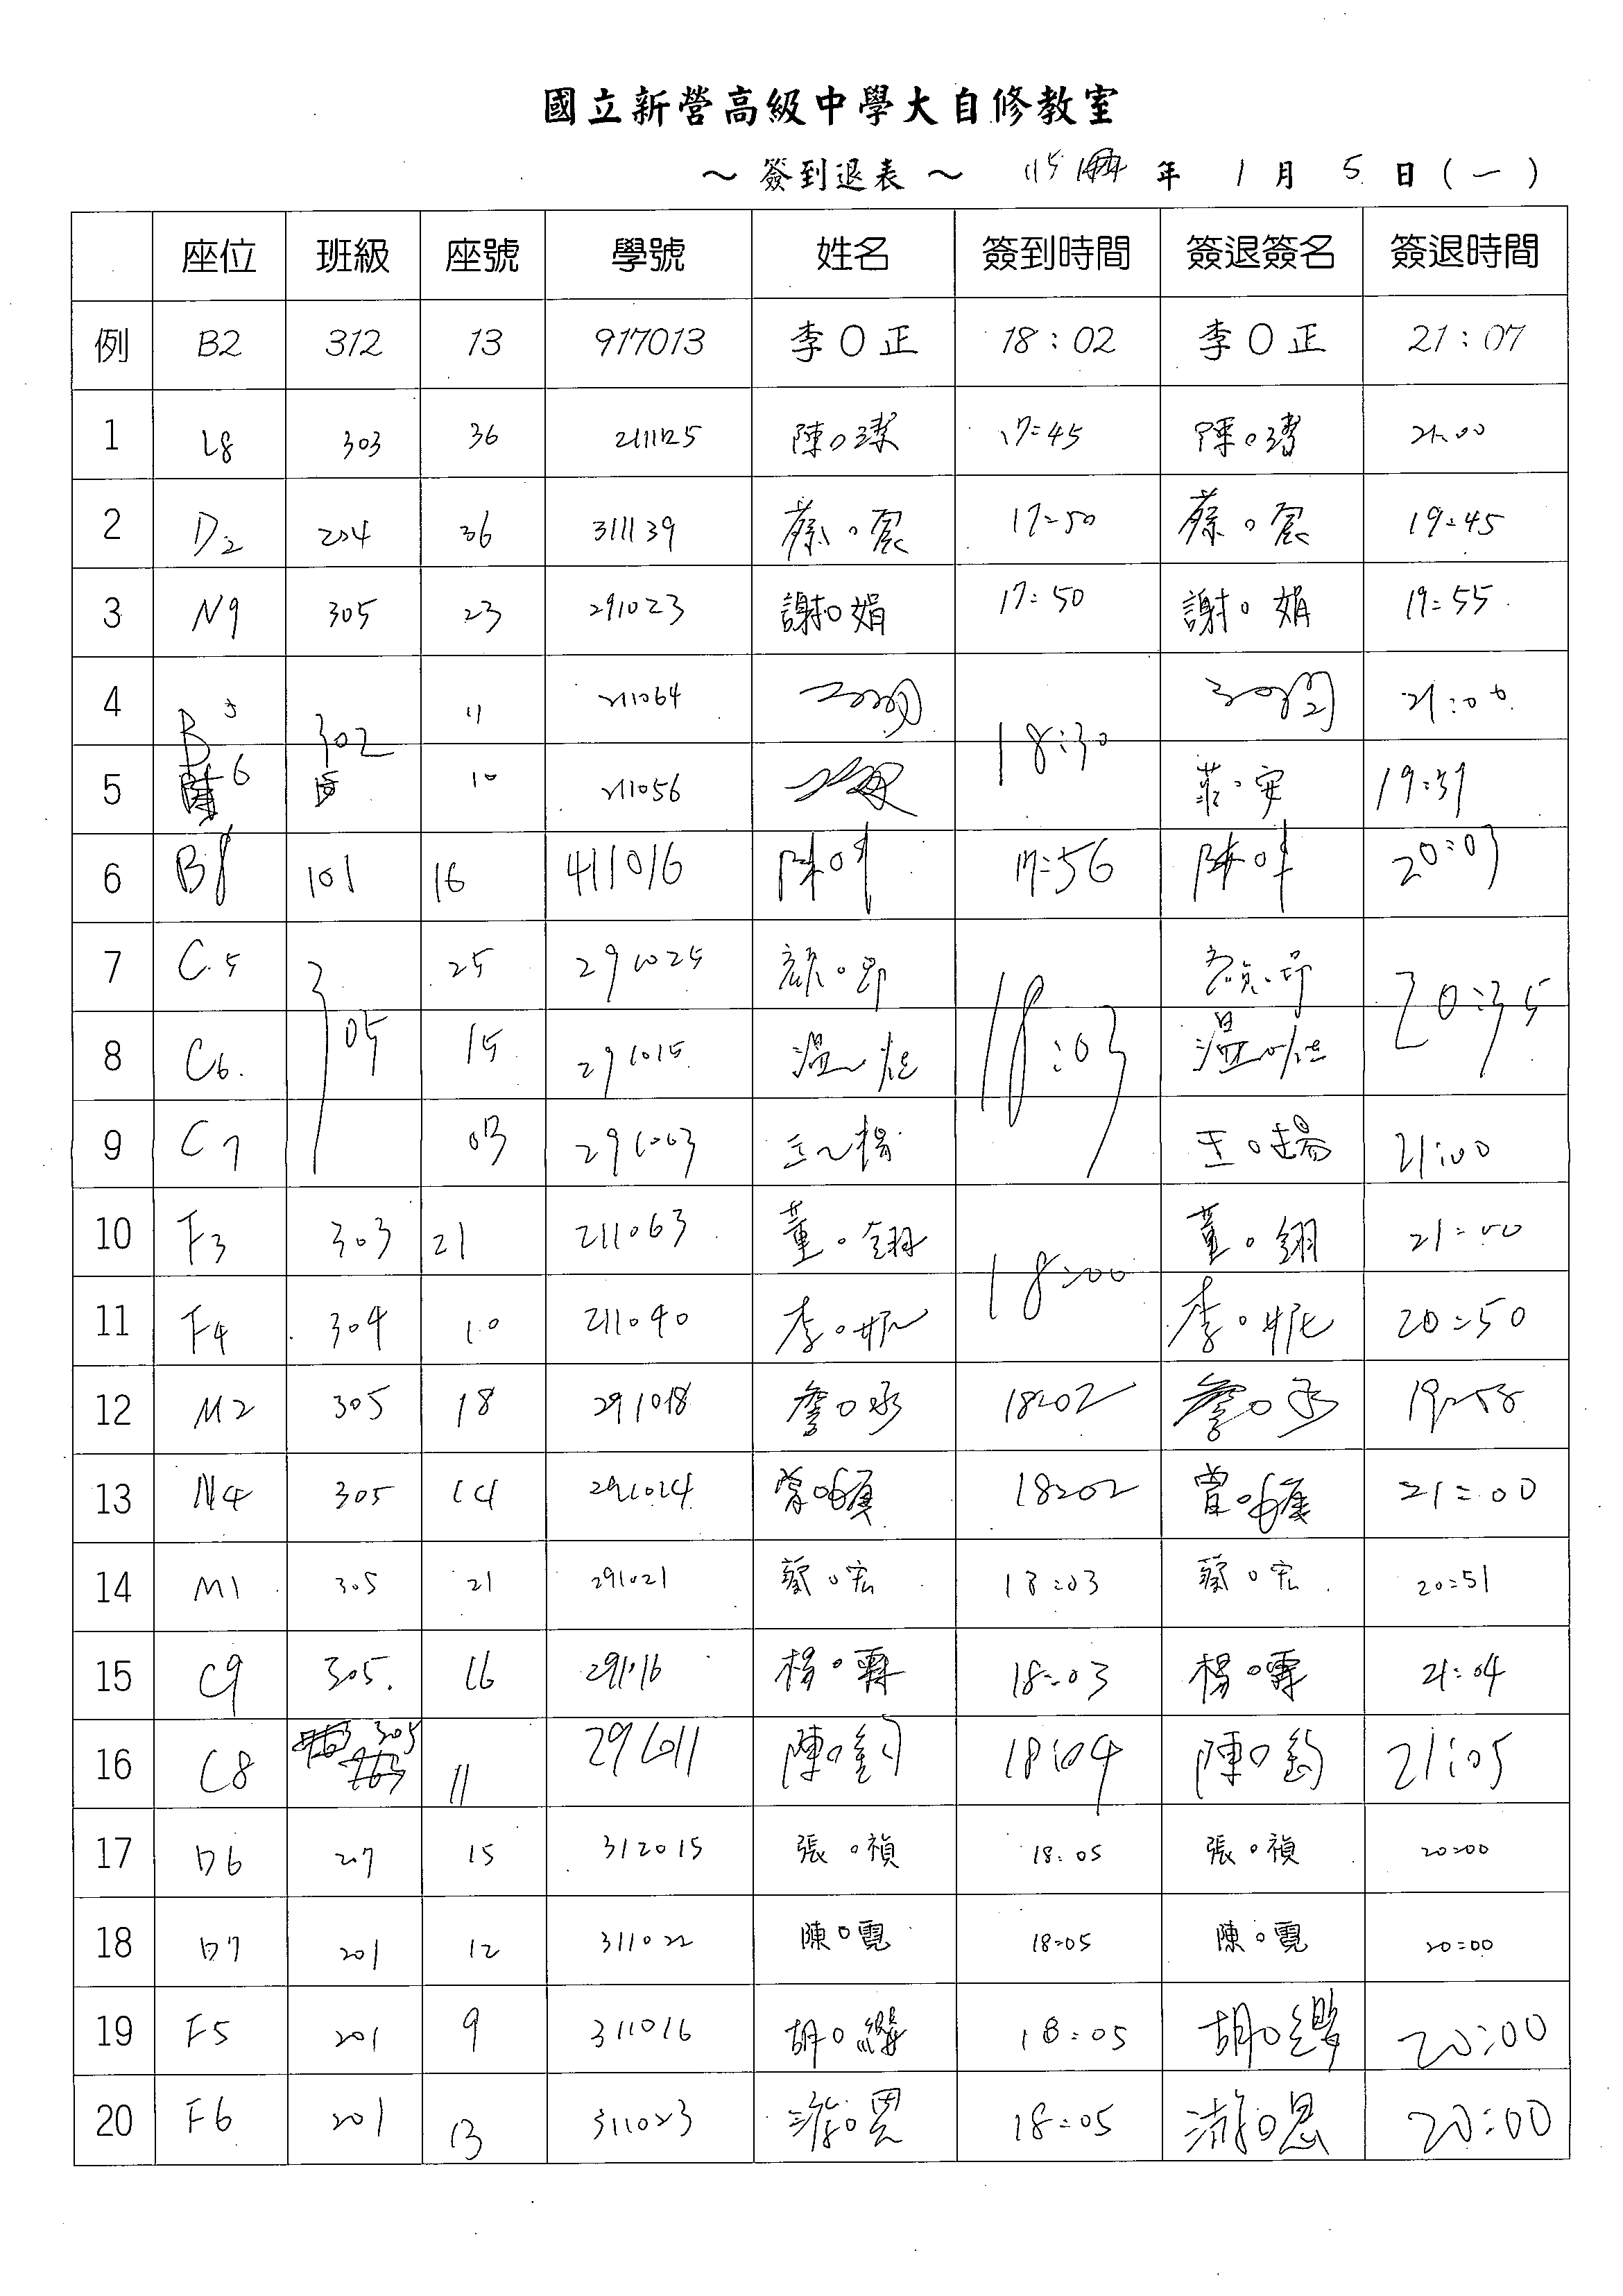 國立新營高級中學大自修教室
～ 簽到退表 ～ 115 年 1 月 5 日 ( 一 )
座位 班級 座號 學號 姓名 簽到時間 簽退簽名 簽退時間
例 B2 312 13 917013 李O正 18:02 李O正 21:07
1 L8 303 36 211125 陳O 17:45 陳O 21:00
2 D2 204 36 311139 蔡O宸 17:50 蔡O宸 19:45
3 N9 305 23 291023 謝O娟 17:50 謝O娟 19:55
4 B5 302 11 211064 18:30 21:00
5 6 10 211056 莊O安 19:39
6 B8 101 16 411016 陳O 17:56 陳O 20:03
7 C5 305 25 291025 顏O 18:03 顏O 20:35
8 C6 15 291015 溫O 溫O
9 C7 03 291003 王O 王O 21:00
10 F3 303 21 211063 董O翎 18:00 董O翎 21:00
11 F4 304 10 211090 李O妮 李O妮 20:50
12 M2 305 18 291018 詹O承 18:02 詹O承 19:58
13 N4 305 14 291014 O 18:02 O 21:00
14 M1 305 21 291021 蔡O宏 18:03 蔡O宏 20:51
15 C9 305 16 291016 楊O霖 18:03 楊O霖 21:04
16 C8 305 11 291011 陳O鈞 18:04 陳O鈞 21:05
17 D6 207 15 312015 張O禎 18:05 張O禎 20:00
18 D7 201 12 311022 陳O霓 18:05 陳O霓 20:00
19 F5 201 9 311016 胡O 18:05 胡O 20:00
20 F6 201 13 311023 游O恩 18:05 游O恩 20:00